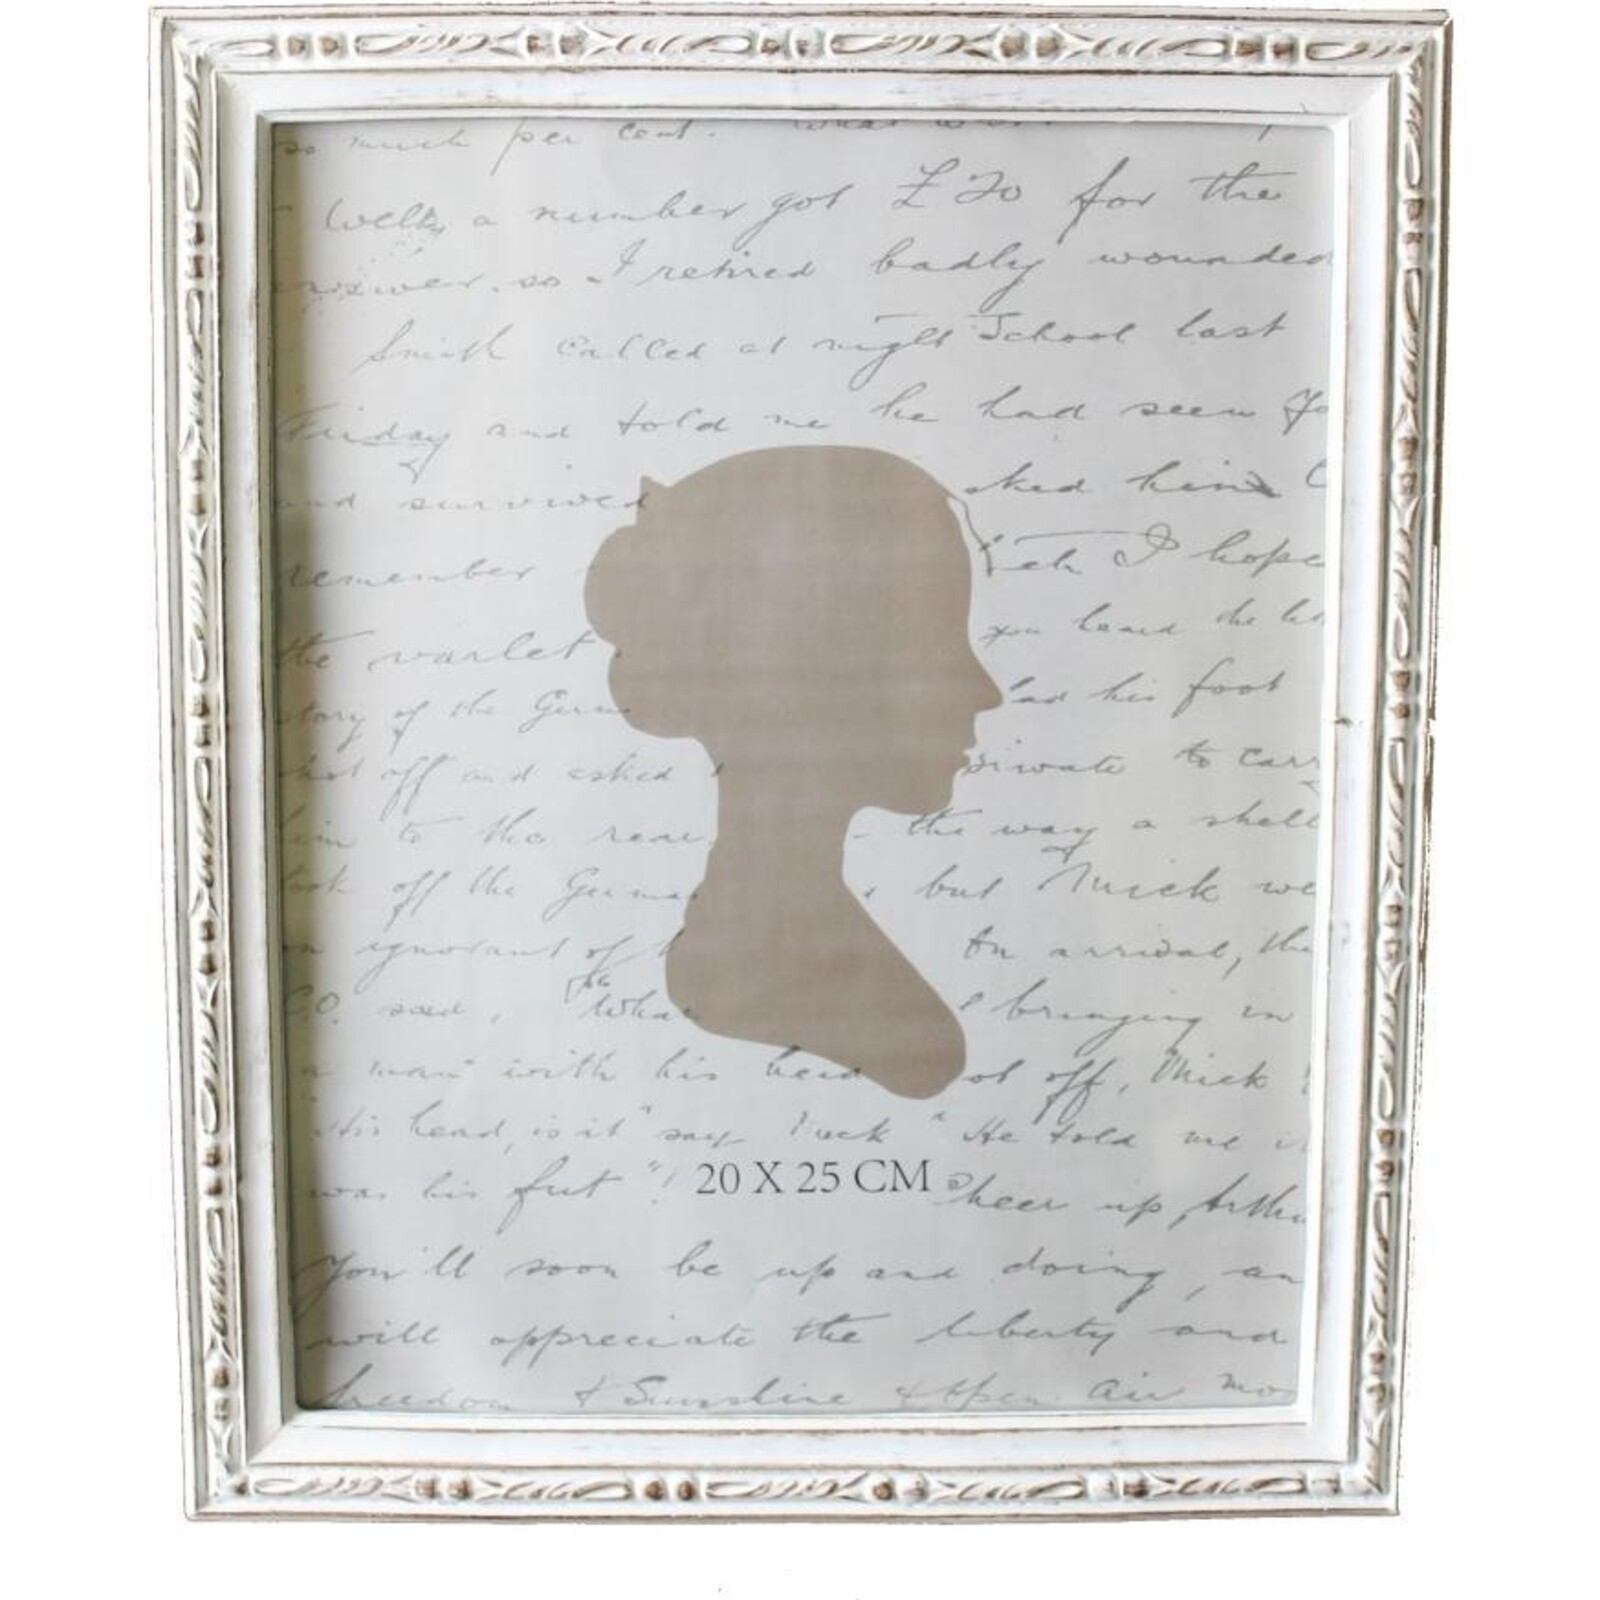 so much per cent.
Well, a number got £20 for the
so I retired badly wounded
Smith called at night School last
Friday and told me he had seen
and survived sked him
remember I hope
the varlet you heard the
story of the his foot
off and asked to
him to the rear the way a shell
took off the but Mick
ignorant of On arrival, the
C.O. said, "What bringing in
a man with his head off, Mick
"His head, is it" say "He told me
was his fut"! 20 X 25 CM Cheer up,
You'll soon be up and doing,
will appreciate the liberty and
freedom & Sunshine & Open Air